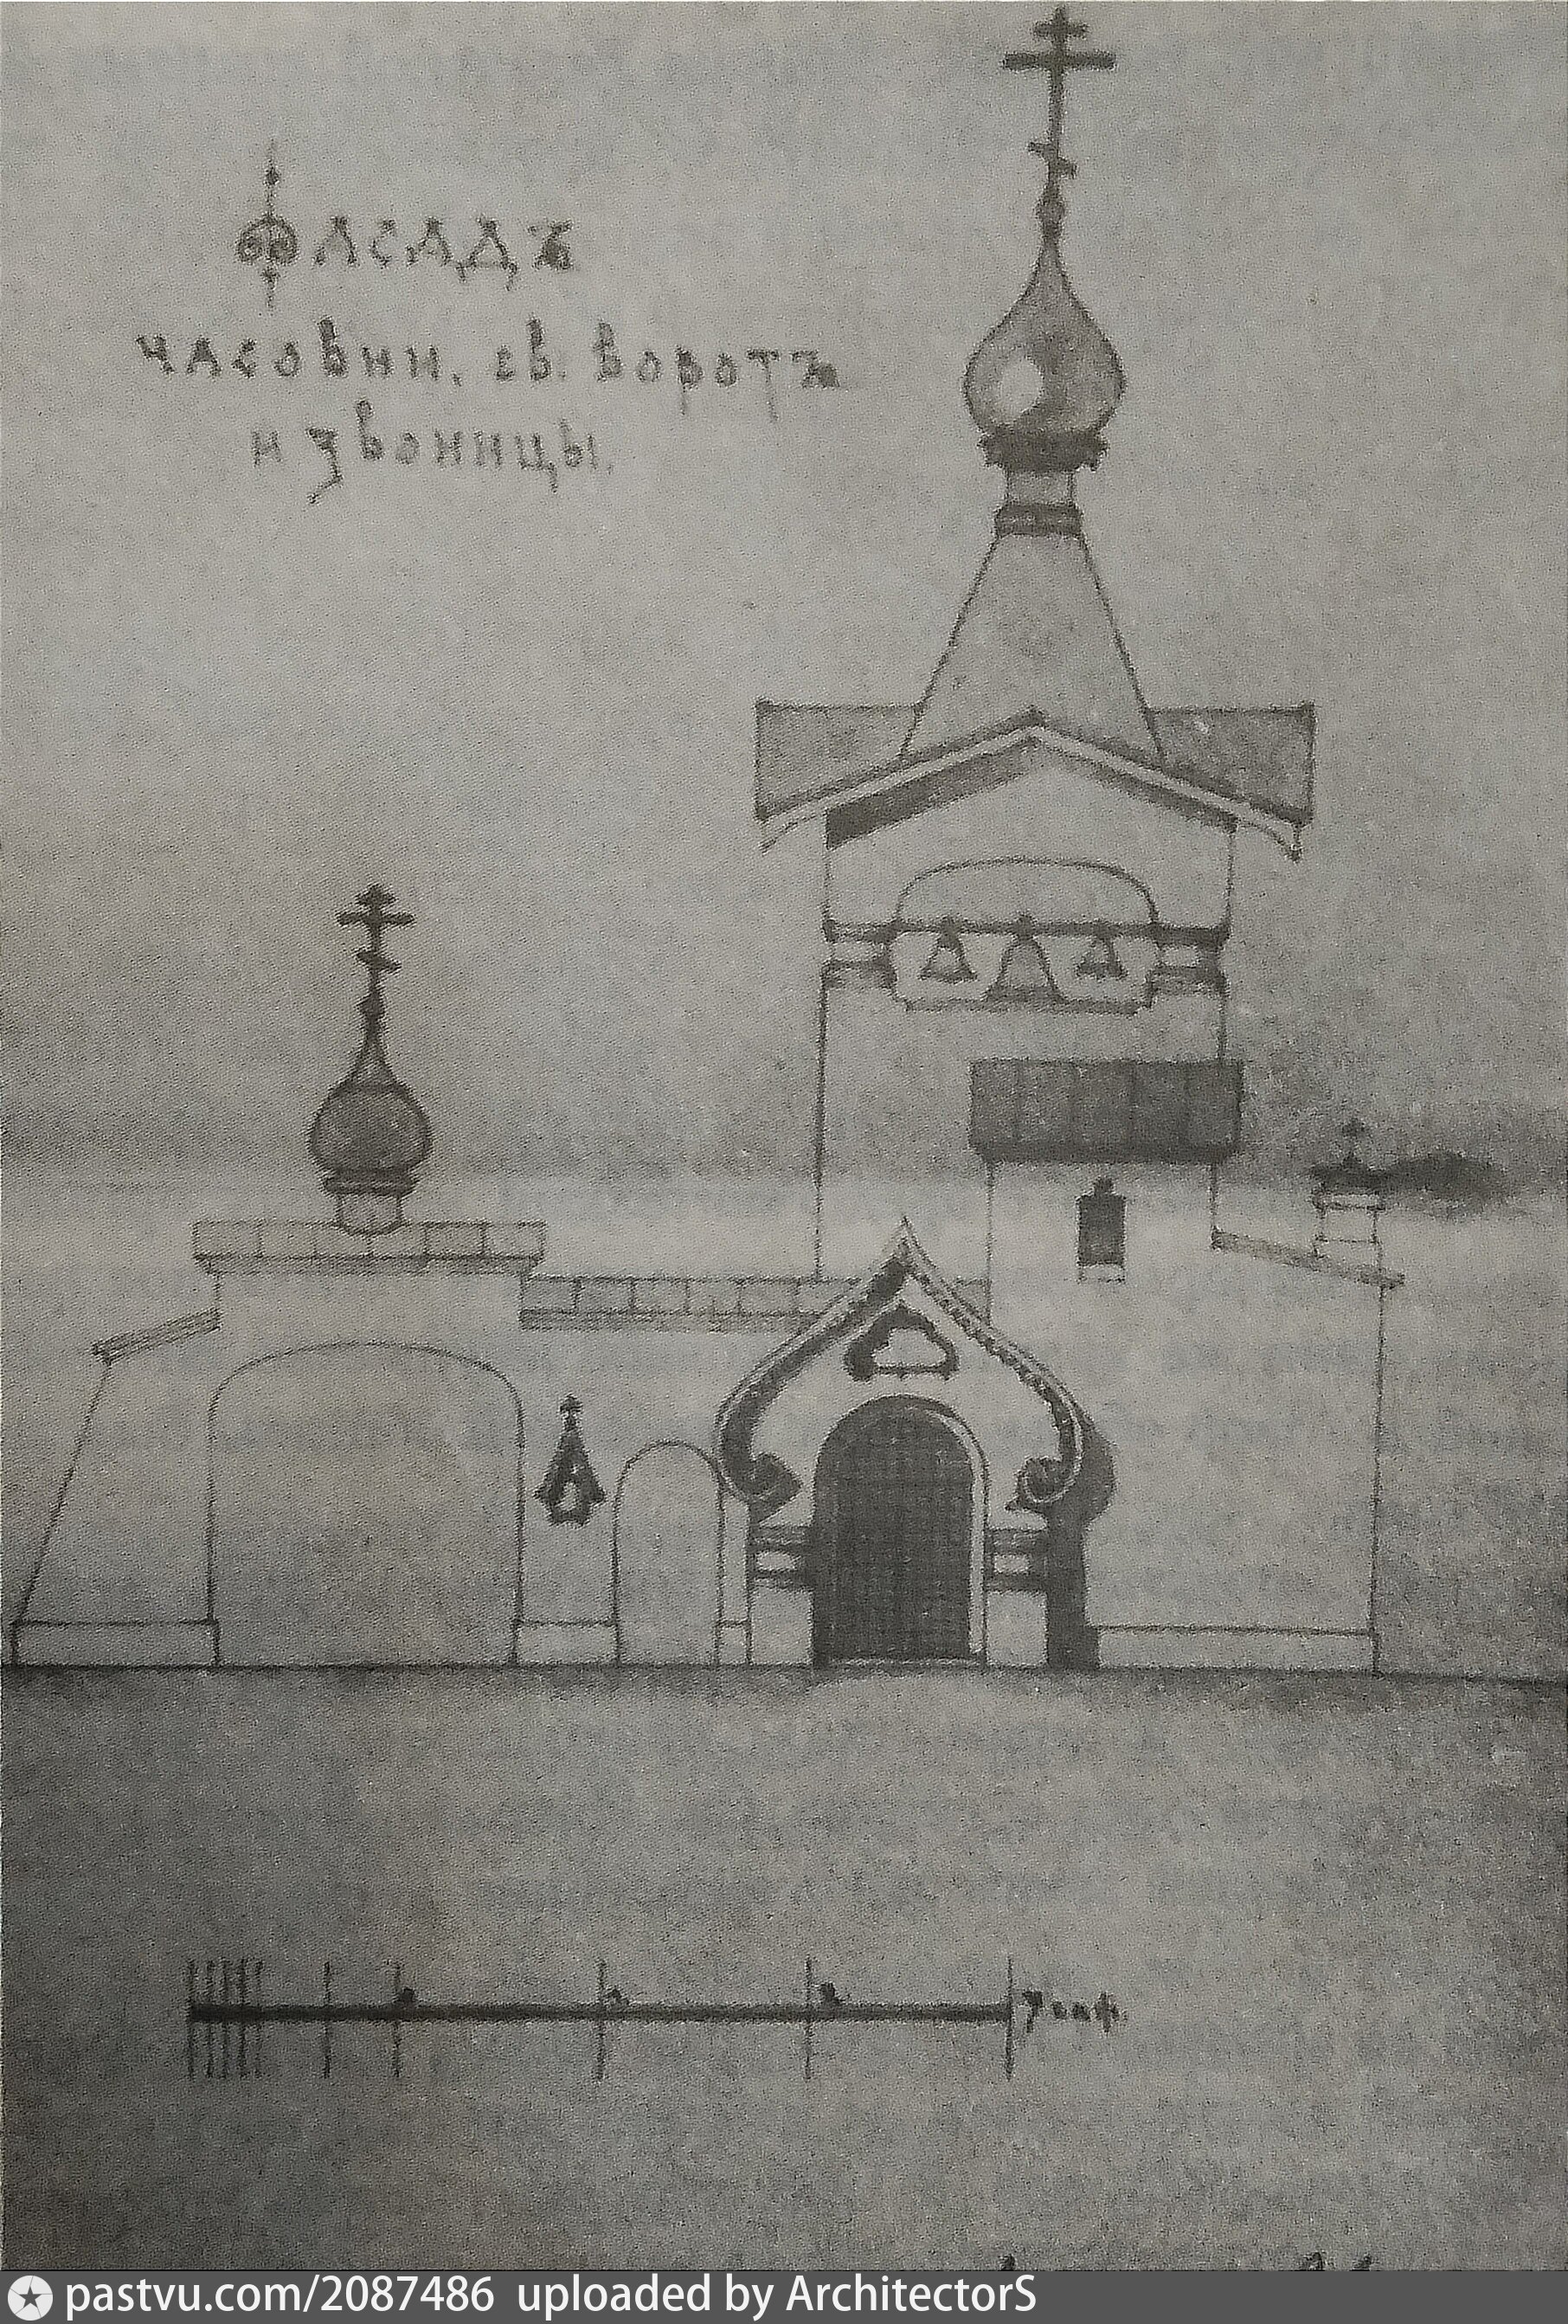 Фасадъ
часовни, св. воротъ
и звонницы.
саж.
pastvu.com/2087486 uploaded by ArchitectorS